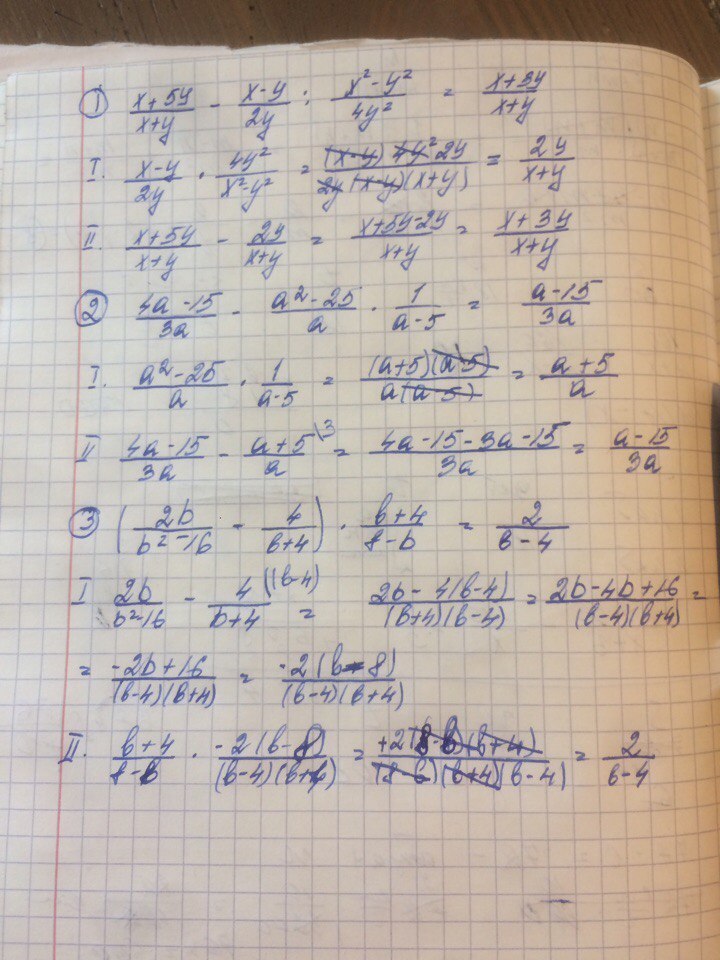 ① (x+5y)/(x+y) - (x-y)/(2y) : (x²-y²)/(4y²) = (x+3y)/(x+y)
I. (x-y)/(2y) · (4y²)/(x²-y²) = ((x-y) 4y² 2y)/(2y (x-y)(x+y)) = (2y)/(x+y)
II. (x+5y)/(x+y) - (2y)/(x+y) = (x+5y-2y)/(x+y) = (x+3y)/(x+y)
② (4a-15)/(3a) - (a²-25)/(a) · 1/(a-5) = (a-15)/(3a)
I. (a²-25)/(a) · 1/(a-5) = ((a+5)(a-5))/(a(a-5)) = (a+5)/(a)
II (4a-15)/(3a) - (a+5)/(a) \3 = (4a-15-3a-15)/(3a) = (a-15)/(3a)
③ ((2b)/(b²-16) - 4/(b+4)) · (b+4)/(8-b) = 2/(b-4)
I (2b)/(b²-16) - 4/(b+4) ((b-4) = (2b-4(b-4))/((b+4)(b-4)) = (2b-4b+16)/((b-4)(b+4)) =
= (-2b+16)/((b-4)(b+4)) = (-2(b-8))/((b-4)(b+4))
II. (b+4)/(8-b) · (-2(b-8))/((b-4)(b+4)) = (+2(8-b)(b+4))/((8-b)(b+4)(b-4)) = 2/(b-4)